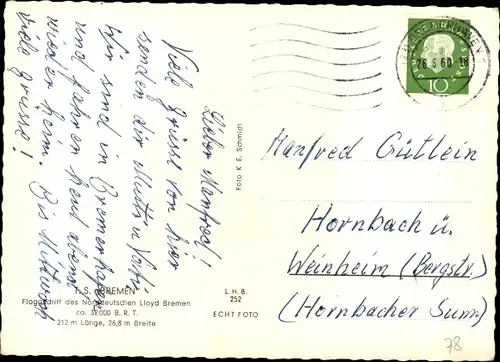 Lieber Manfred!
Viele Grüsse von hier
senden dir Mutti u. Vati.
Wir sind in Bremerhaven
und fahren heut abend
wieder heim. Bis Mittwoch
viele Grüsse!
T. S. „BREMEN“
Flaggschiff des Norddeutschen Lloyd Bremen
ca. 32000 B. R. T.
212 m Länge, 26,8 m Breite
L. H. B.
252
ECHT FOTO
Foto K. E. Schmidt
26.6.60.18
10
Manfred Gütlein
Hornbach ü.
Weinheim (Bergstr.)
(Hornbacher
78